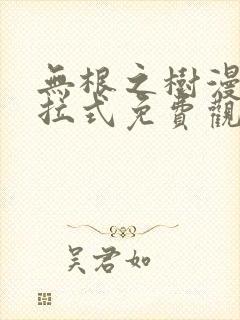 無根之樹漫
拉式免費觀
吴君如